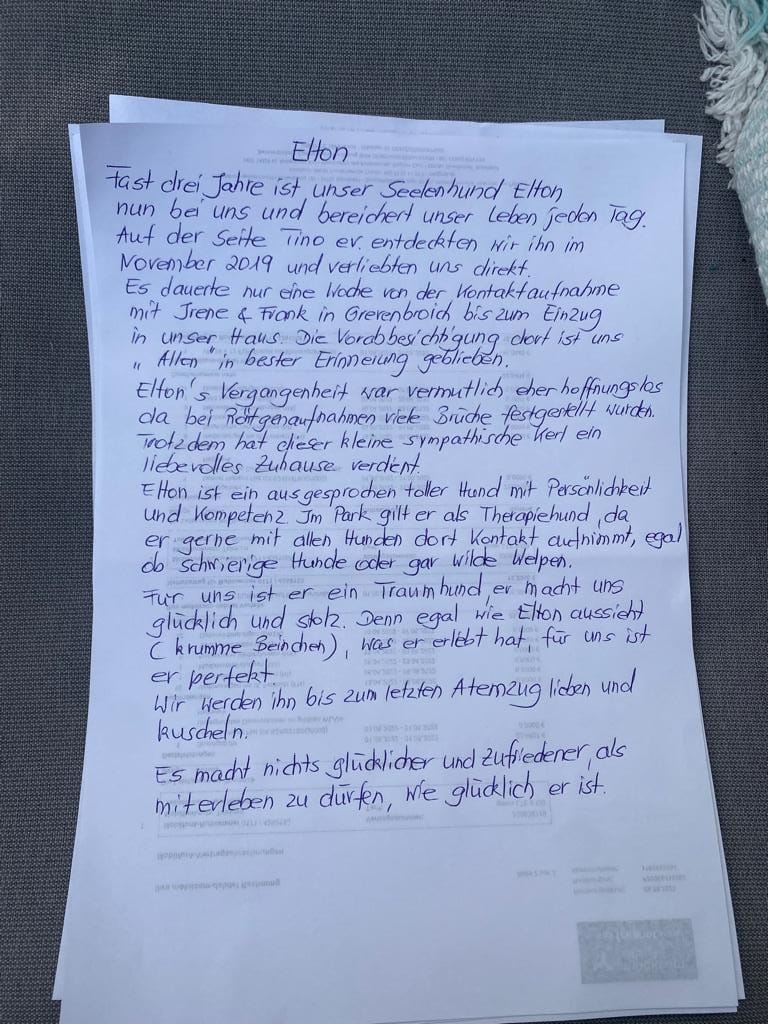 Elton
Fast drei Jahre ist unser Seelenhund Elton
nun bei uns und bereichert unser Leben jeden Tag.
Auf der Seite Tino ev. entdeckten wir ihn im
November 2019 und verliebten uns direkt.
Es dauerte nur eine Woche von der Kontaktaufnahme
mit Irene & Frank in Grevenbroich bis zum Einzug
in unser Haus. Die Vorabbesichtigung dort ist uns
„Allen" in bester Erinnerung geblieben.
Elton's Vergangenheit war vermutlich eher hoffnungslos
da bei Röntgenaufnahmen viele Brüche festgestellt wurden.
Trotzdem hat dieser kleine sympathische Kerl ein
liebevolles Zuhause verdient.
Elton ist ein ausgesprochen toller Hund mit Persönlichkeit
und Kompetenz. Im Park gilt er als Therapiehund, da
er gerne mit allen Hunden dort Kontakt aufnimmt, egal
ob schwierige Hunde oder gar wilde Welpen.
Für uns ist er ein Traumhund, er macht uns
glücklich und stolz. Denn egal wie Elton aussieht
(krumme Beinchen), was er erlebt hat, für uns ist
er perfekt
Wir werden ihn bis zum letzten Atemzug lieben und
kuscheln.
Es macht nichts glücklicher und zufriedener, als
miterleben zu dürfen, wie glücklich er ist.